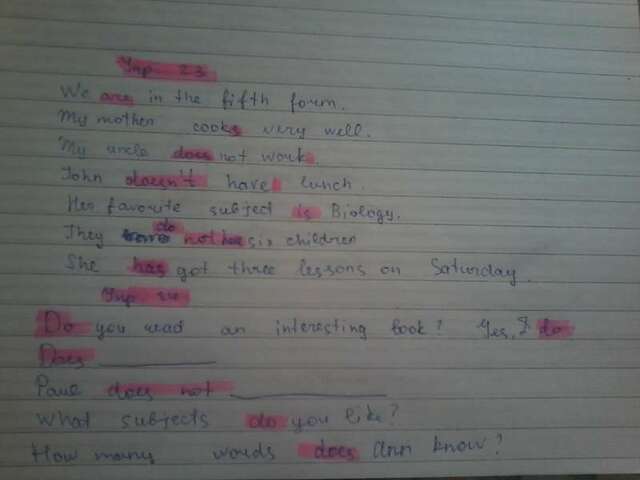 Упр. 23
We are in the fifth form.
My mother cooks very well.
My uncle does not work.
John doesn't have lunch.
Her favorite subject is Biology.
They do not six children
She has got three lessons on Saturday.
Упр 24
Do you read an interesting book? Yes, I do
Does
Paul does not
What subjects do you like?
How many words does Ann know?